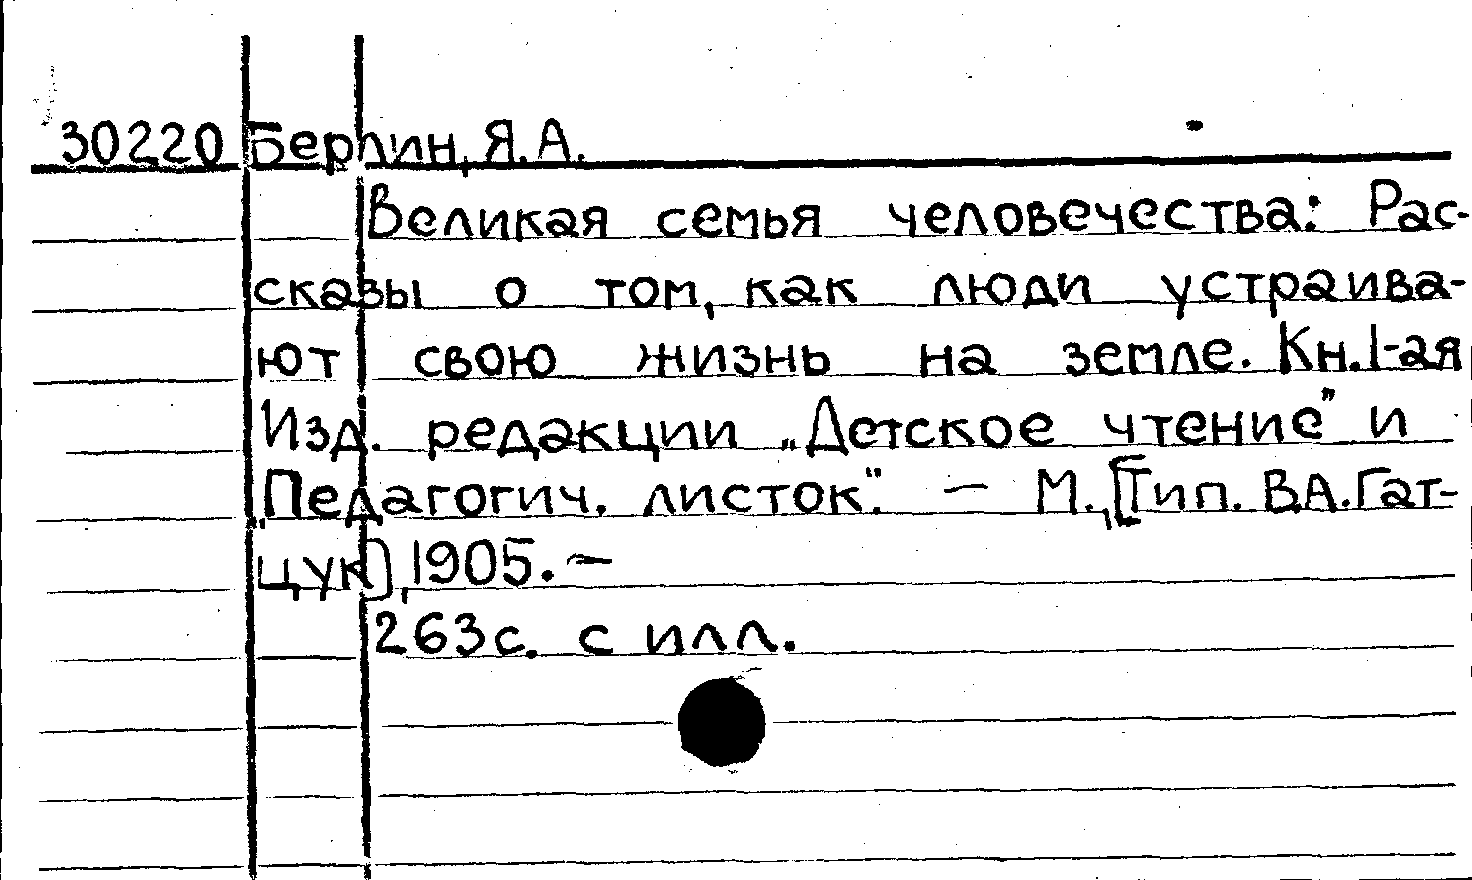 30220 Берлин, Я.А.
Великая семья человечества: Рас-
сказы о том, как люди устраива-
ют свою жизнь на земле. Кн.1-ая
Изд. редакции „Детское чтение” и
„Педагогич. листок”. — М., [Тип. В.А. Гат-
цук], 1905. —
263с. с илл.